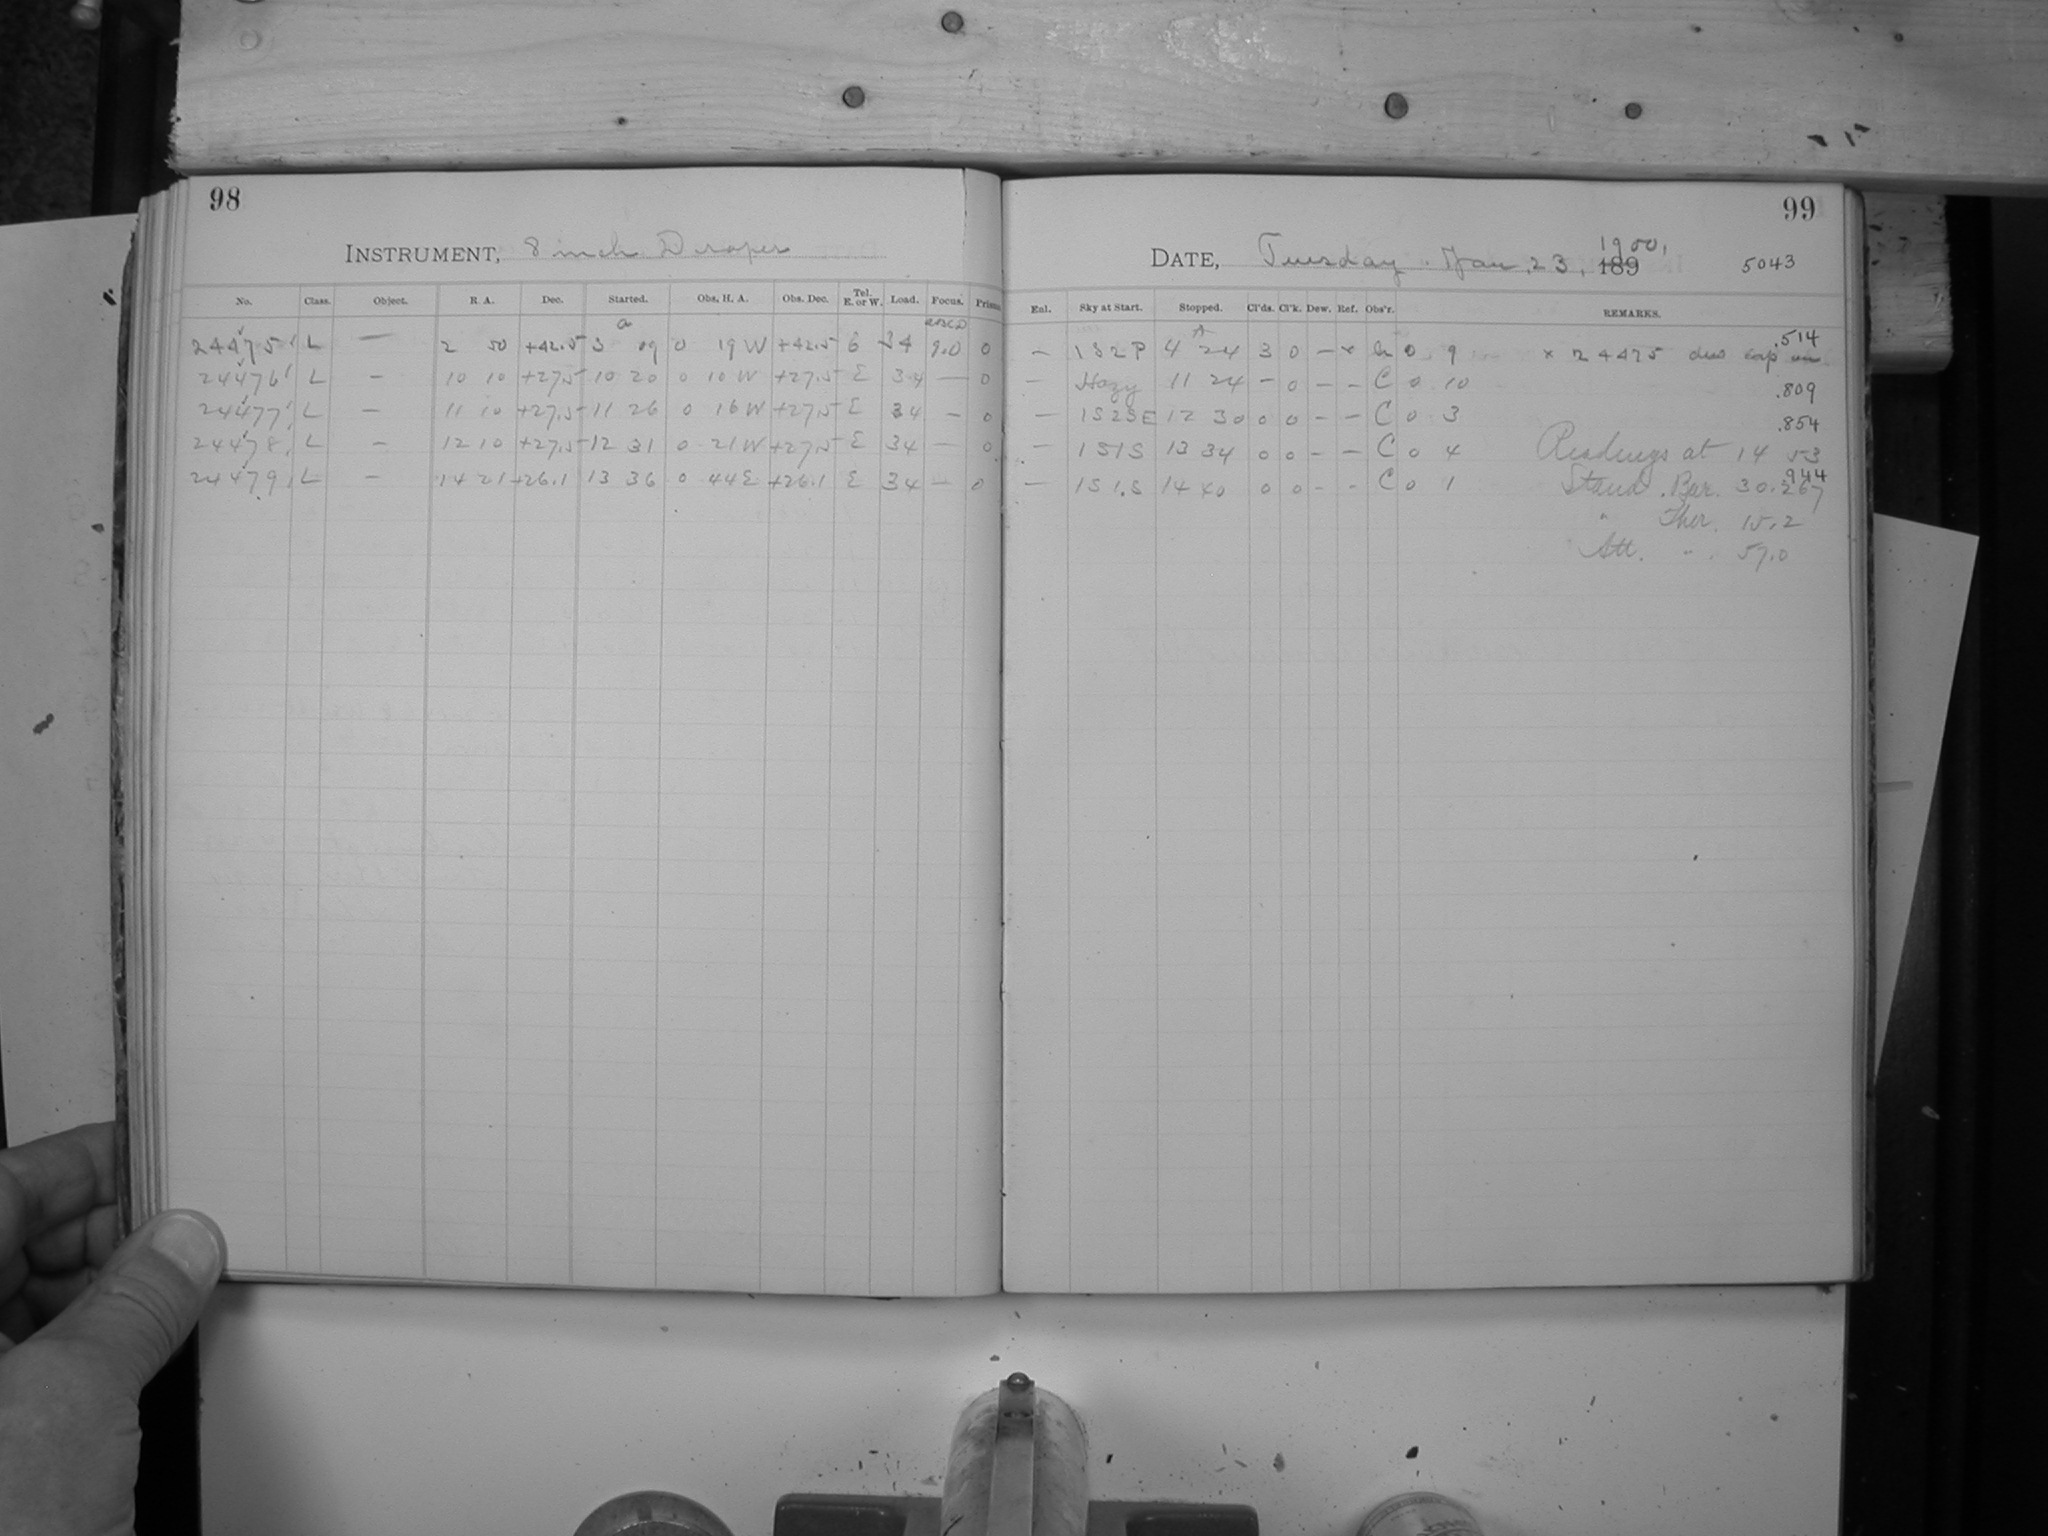 98
INSTRUMENT, 8 inch Draper
No. Class. Object. R. A. Dec. Started. Obs. H. A. Obs. Dec. Tel. E. or W. Load. Focus. Prisms
24475 L — 2 50 +42.5 3 09 0 19 W +42.5 E 34 9.0 0
24476 L — 10 10 +27.5 10 20 0 10 W +27.5 E 34 — 0
24477 L — 11 10 +27.5 11 26 0 16 W +27.5 E 34 — 0
24478 L — 12 10 +27.5 12 31 0 21 W +27.5 E 34 — 0
24479 L — 14 21 +26.1 13 36 0 44 E +26.1 E 34 — 0
99
DATE, Tuesday. Jan. 23, 189 1900, 5043
Enl. Sky at Start. Stopped. Cl'ds. Cl'k. Dew. Ref. Obs'r. REMARKS.
— 1S2P 4 24 3 0 — × 0 9 × 24475 dew cap on .514
— Hazy 11 24 — 0 — — C 0 10 .809
— 1S2SE 12 30 0 0 — — C 0 3 .854
— 1S1S 13 34 0 0 — — C 0 4 Readings at 14 53
— 1S1S 14 40 0 0 — — C 0 1 Stand. Bar. 30.267 .944
" Ther. 15.2
Att. " 57.0